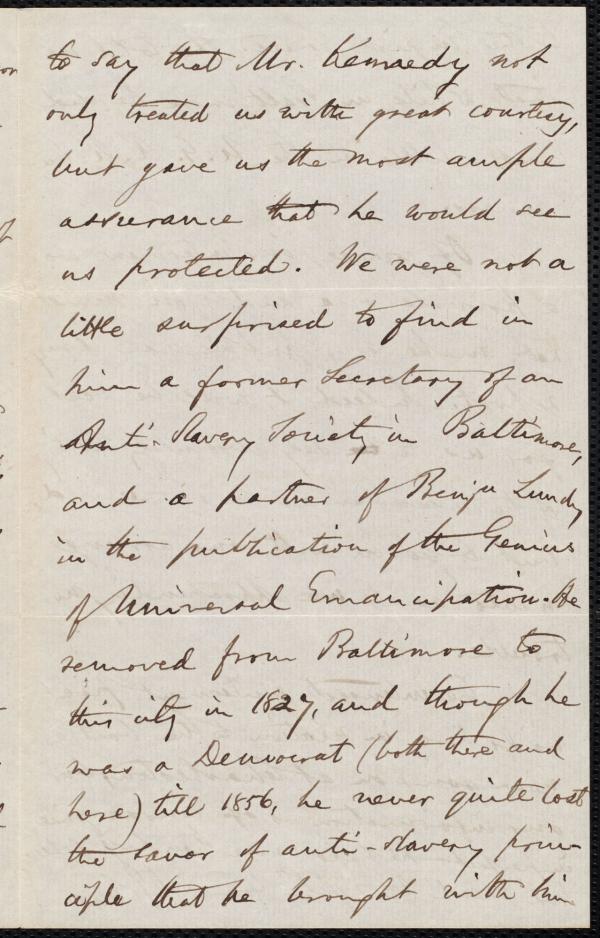 to say that Mr. Kennedy not
only treated us with great courtesy,
but gave us the most ample
assurance that he would see
us protected. We were not a
little surprised to find in
him a former Secretary of an
Anti-Slavery Society in Baltimore,
and a partner of Benjn Lundy
in the publication of the Genius
of Universal Emancipation. He
removed from Baltimore to
this city in 1827, and though he
was a Democrat (both there and
here) till 1856, he never quite lost
the savor of anti-slavery prin-
ciple that he brought with him